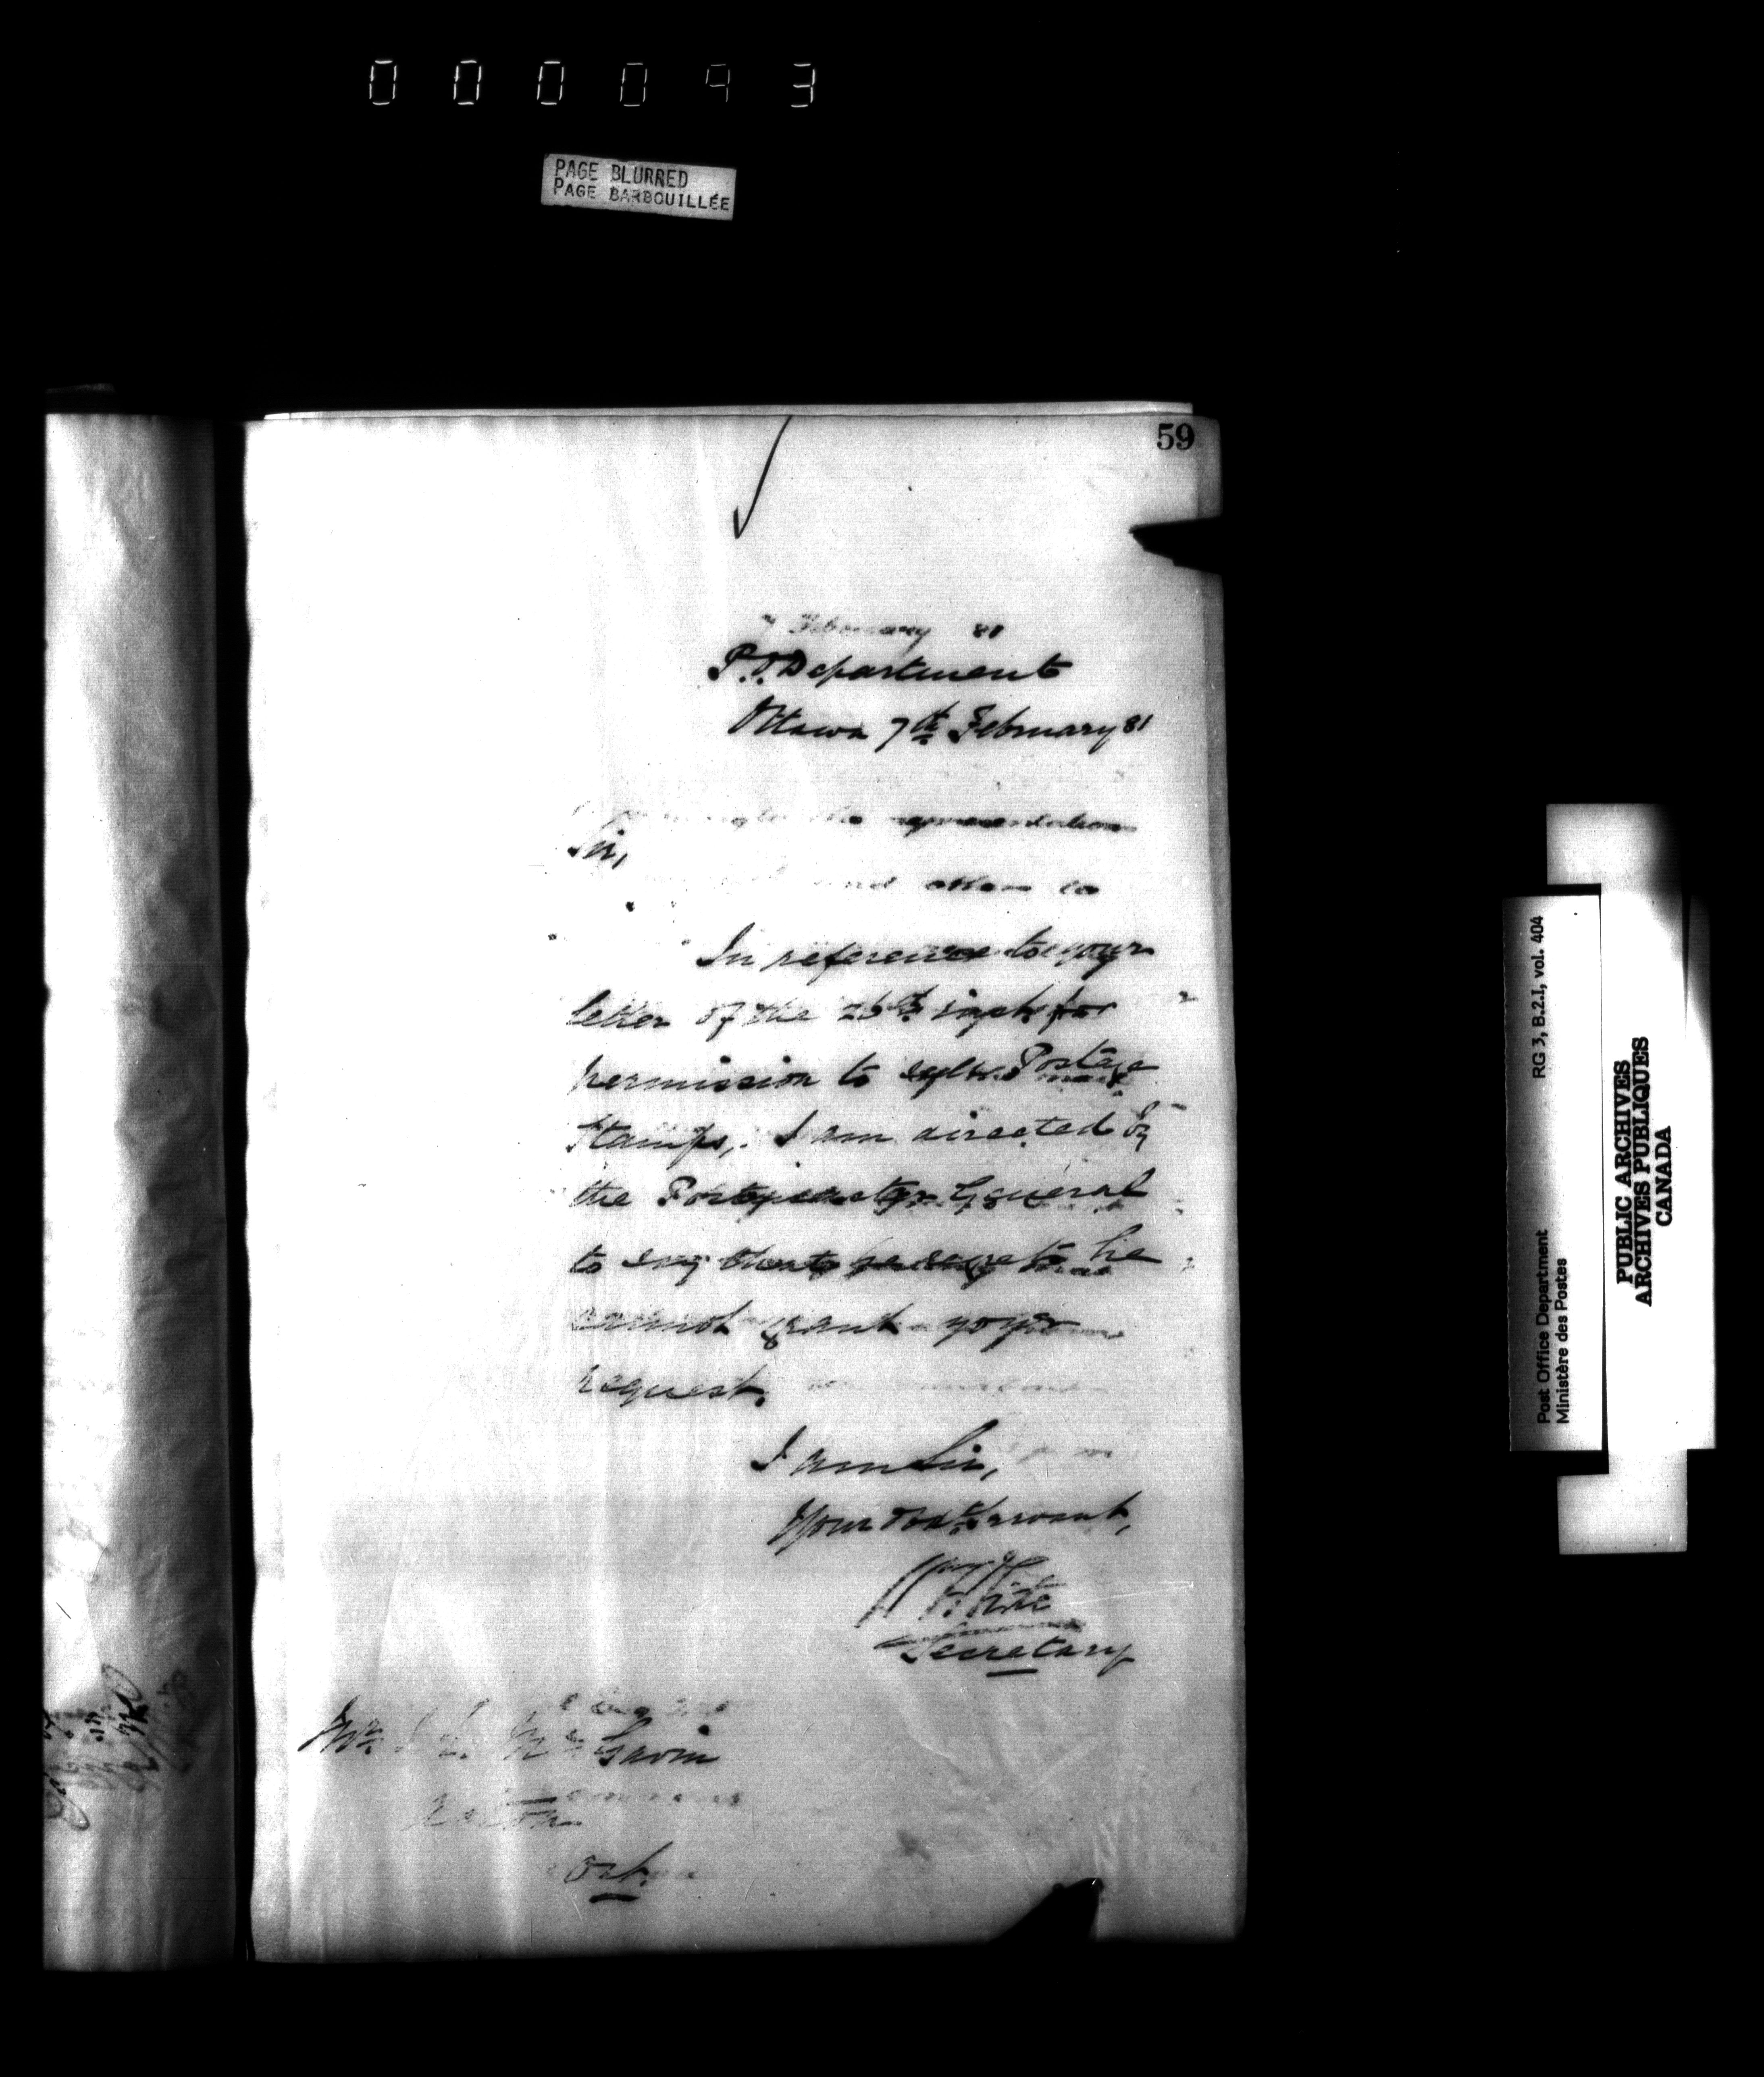 000093
PAGE BLURRED
PAGE BARBOUILLÉE
59
7 February 81
P.O. Department
Ottawa 7th February 81
the representation
Sir,
and
In reference to your
letter of the 26th for
permission to Postage
Stamps, I am directed by
the Postmaster General
to say that he
cannot grant your
request.
I am Sir,
Your Obt. Servant,
White
Secretary
Mr. Mc Gavin
Ont.
Post Office Department
Ministère des Postes
RG 3, B.2.1, vol. 404
PUBLIC ARCHIVES
ARCHIVES PUBLIQUES
CANADA